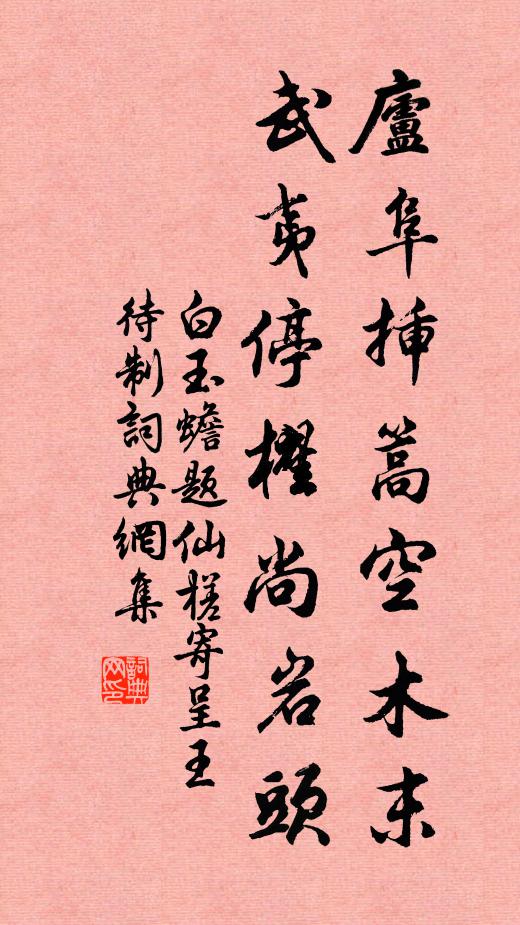 廬阜插篙空木末
武夷停櫂尚岩頭
白玉蟾題仙槎寄呈王
待制詞典網集
詞典网印